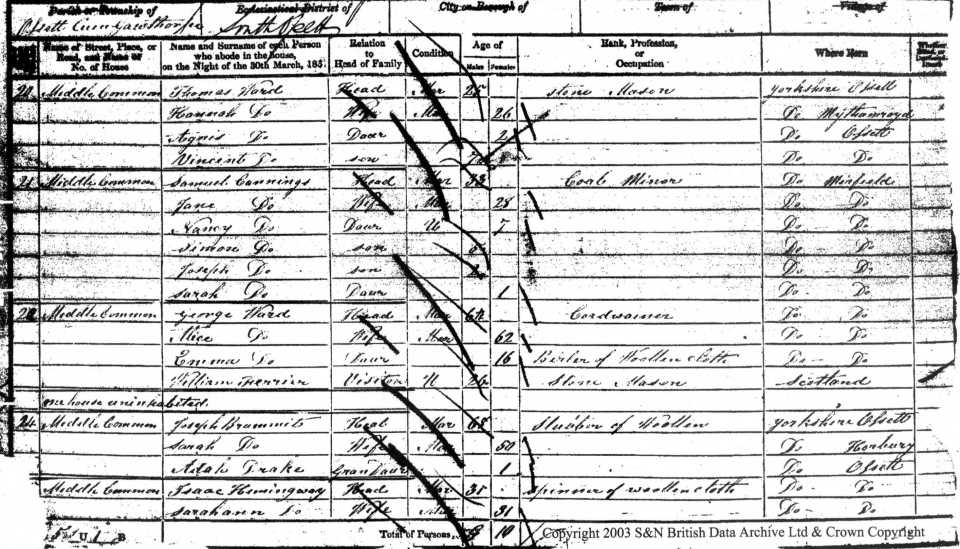 Parish or Township of Ecclesiastical District of City or Borough of Town of Village of
Ossett Cum Gawthorpe South Ossett
Name of Street, Place, or Road, and Name or No. of House Name and Surname of each Person who abode in the house, on the Night of the 30th March, 1851 Relation to Head of Family Condition Age of Males Females Rank, Profession, or Occupation Where Born Whether Blind, or Deaf-and-Dumb
20 Middle Common Thomas Ward Head Mar 25 Stone Mason Yorkshire Ossett
Hannah Do Wife Mar 26 Do Mythamroyd
Agnis Do Daur 2 Do Ossett
Vincent Do son Do Do
21 Middle Common Samuel Cannings Head Mar 33 Coal Minor Do Mirfield
Jane Do Wife Mar 28 Do Do
Nancy Do Daur U 7 Do Do
Simon Do son Do Do
Joseph Do son Do Do
Sarah Do Daur 1 Do Do
Middle Common George Ward Head Mar 64 Cordwainer Do Do
Alice Do Wife Mar 62 Do Do
Emma Do Daur 16 Birler of Woollen cloth Do Do
William Ferrier Visitor U 26 Stone Mason Scotland
one house uninhabited
24 Middle Common Joseph Brammitt Head Mar 68 Slubber of Woollen Yorkshire Ossett
Sarah Do Wife Mar 50 Do Horbury
Adah Drake Gran Daur 1 Do Ossett
Middle Common Isaac Hemingway Head Mar 31 Spinner of woollen cloth Do Do
Sarahann Do Wife Mar 31 Do Do
Total of Persons 9 10
Copyright 2003 S&N British Data Archive Ltd & Crown Copyright